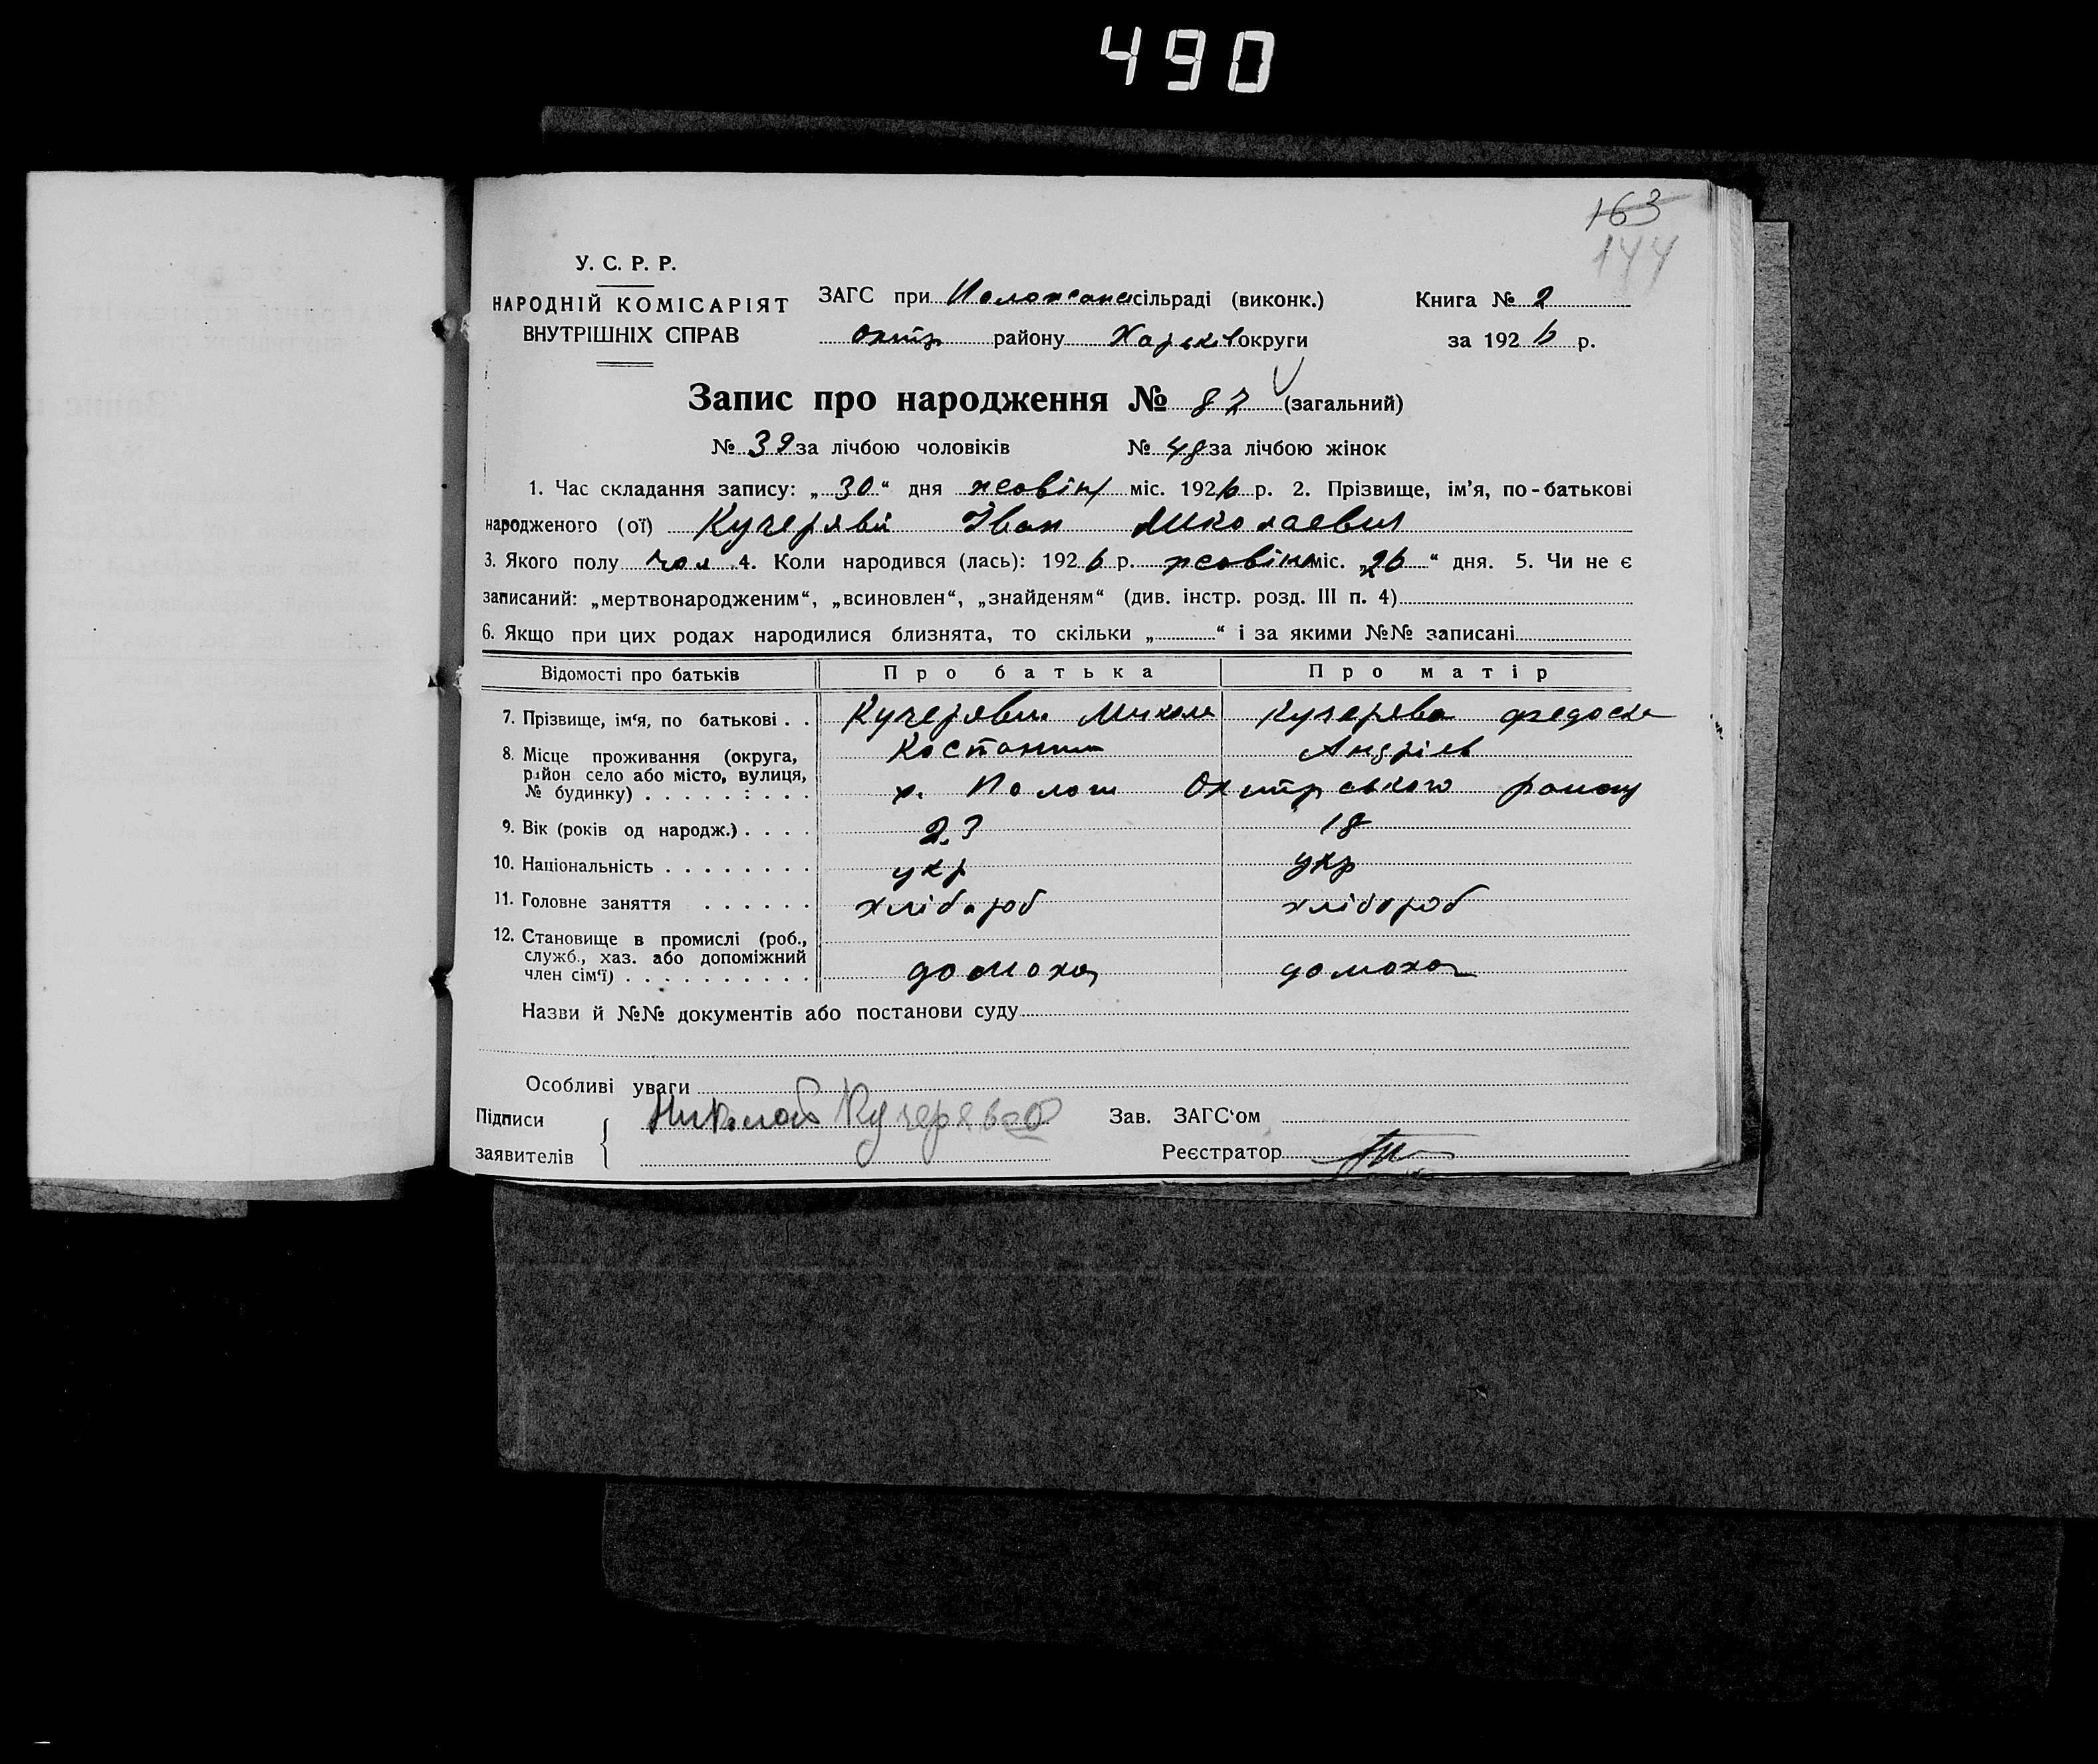 490
163
144
У. С. Р. Р.
НАРОДНІЙ КОМІСАРІЯТ
ВНУТРІШНІХ СПРАВ
ЗАГС при сільраді (виконк.)
Книга № 2
Охтир району Харьків округи
за 1926 р.
Запис про народження № 87 (загальний)
№ 39 за лічбою чоловіків № 48 за лічбою жінок
1. Час складання запису: „30“ дня жовтн міс. 1926 р. 2. Прізвище, ім’я, по-батькові
народженого (ої) Кучерявий Іван Миколаевич
3. Якого полу чол 4. Коли народився (лась): 1926 р. жовтня міс. „26“ дня. 5. Чи не є
записаний: „мертвонародженим“, „всиновлен“, „знайденям“ (див. інстр. розд. III п. 4)
6. Якщо при цих родах народилися близнята, то скільки „ “ і за якими №№ записані
Відомості про батьків Про батька Про матір
7. Прізвище, ім‘я, по батькові . . Кучерявий Микола Кучерява Федоска
Костантин Андріев
8. Місце проживання (округа,
район село або місто, вулиця,
№ будинку) . . . . . . . . . х. Охтирського району
9. Вік (років од народж.) . . . . 23 18
10. Національність . . . . . . . . укр укр
11. Головне заняття . . . . . . хлібороб хлібороб
12. Становище в промислі (роб.,
служб., хаз. або допоміжний
член сім‘ї) . . . . . . . . . . домохаз домохаз
Назви й №№ документів або постанови суду
Особливі уваги
Підписи
заявителів
Николай Кучерявый
Зав. ЗАГС‘ом
Реєстратор